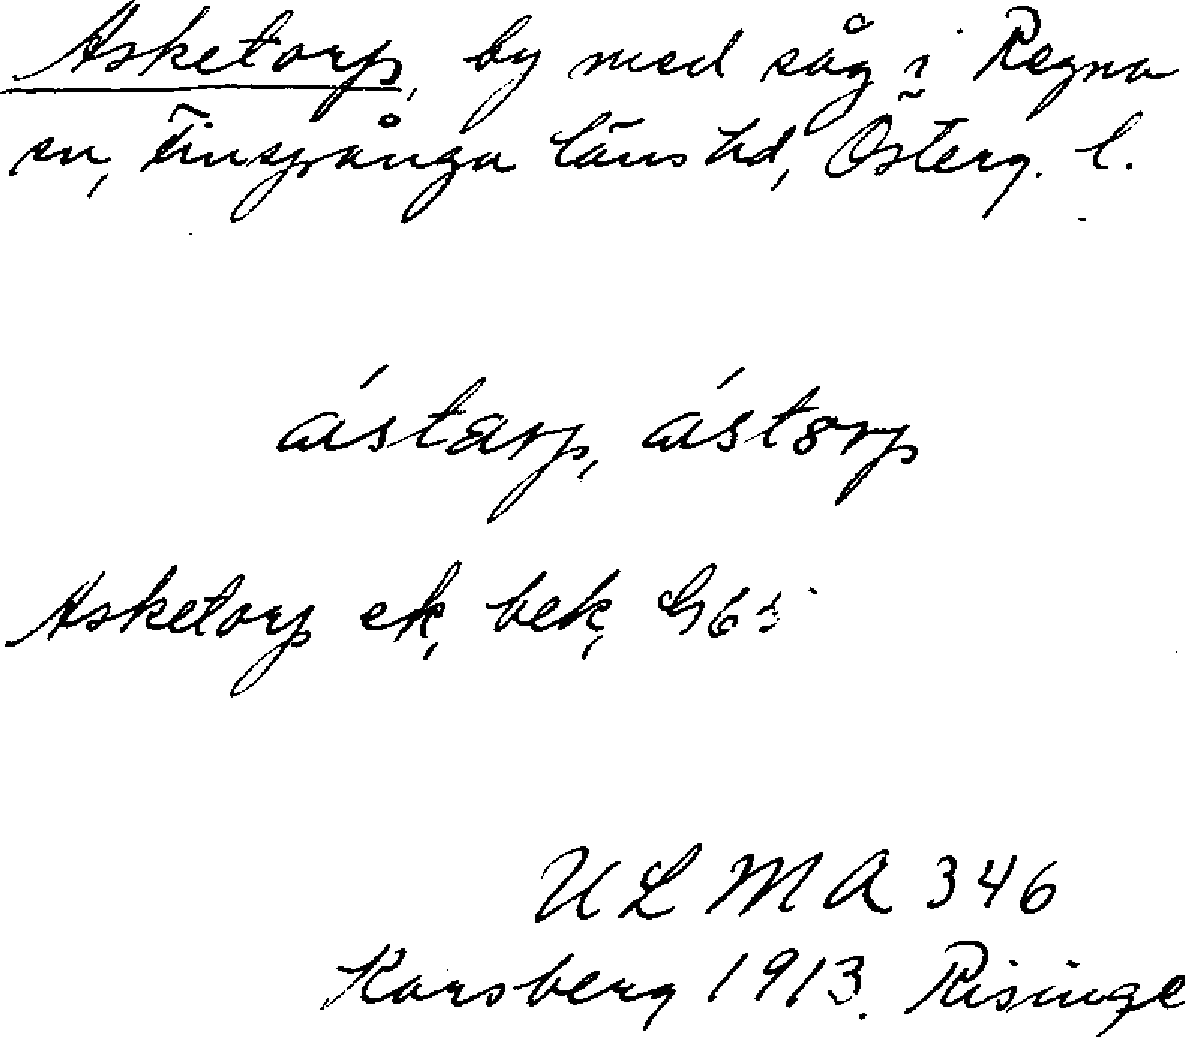 Asketorp, by med såg i Regna
sn, Finspånga läns hd, Österg. l.
ástarp, ástorp
Asketorp ek, bek,
ULMA 346
Karsberg 1913. Risinge